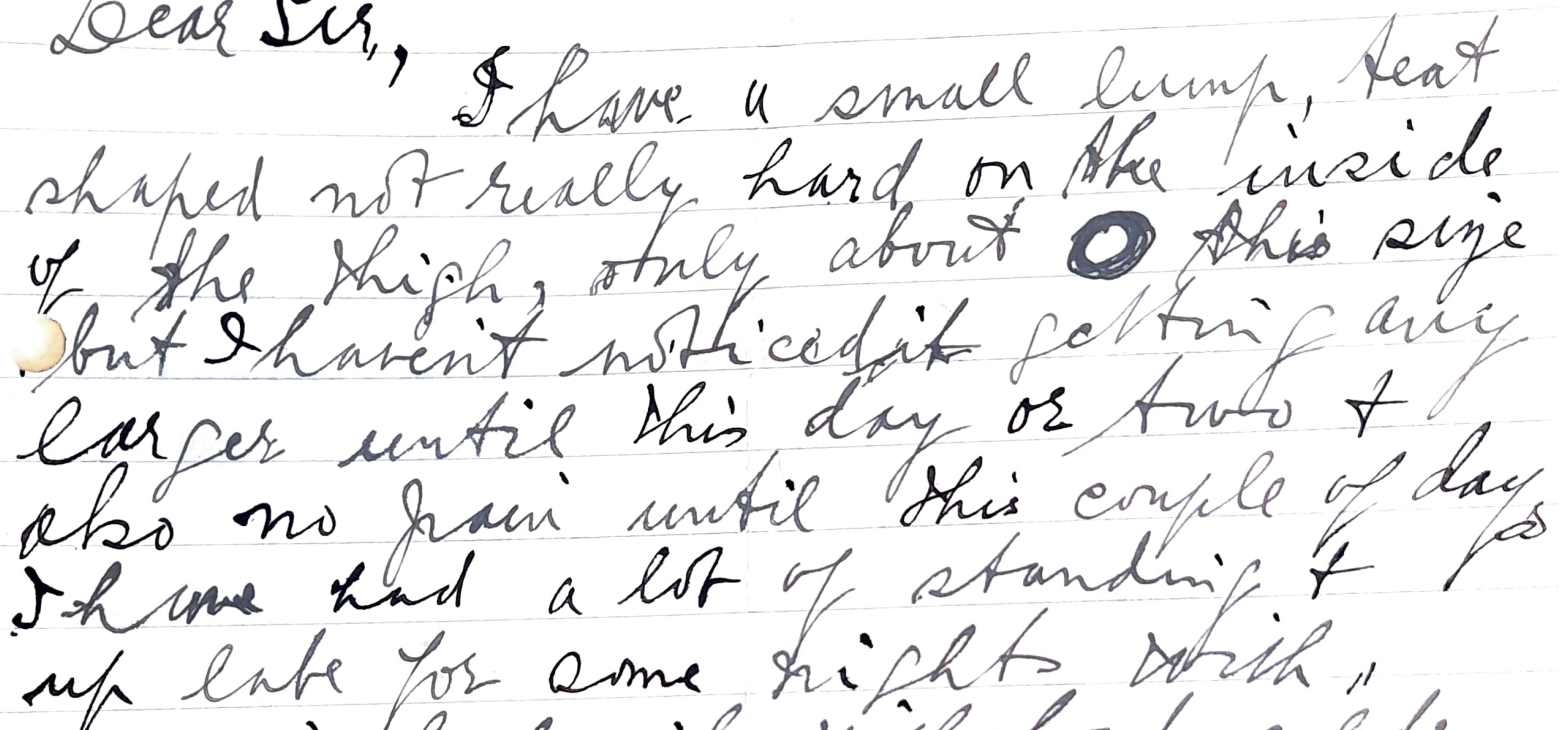 Dear Sir,,
I have a small lump, teat
shaped not really hard on the inside
of the thigh, only about O this size
but I haven't noticed it getting any
larger until this day or two +
also no pain until this couple of days
I have had a lot of standing +
up late for some nights with "